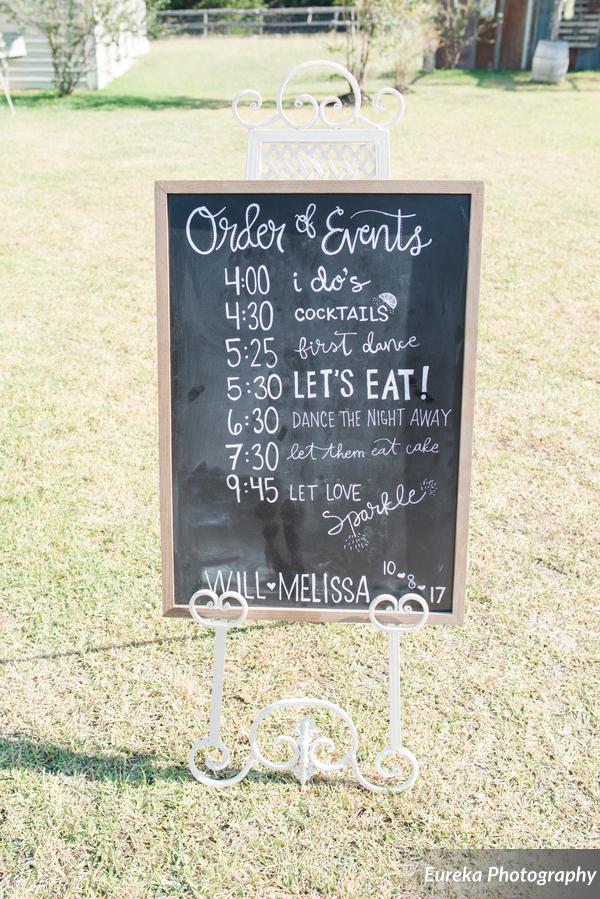 Order of Events
4:00 i do's
4:30 COCKTAILS
5:25 first dance
5:30 LET'S EAT!
6:30 DANCE THE NIGHT AWAY
7:30 let them eat cake
9:45 LET LOVE
sparkle
WILL ♥ MELISSA 10 ♥ 8 ♥ 17
Eureka Photography